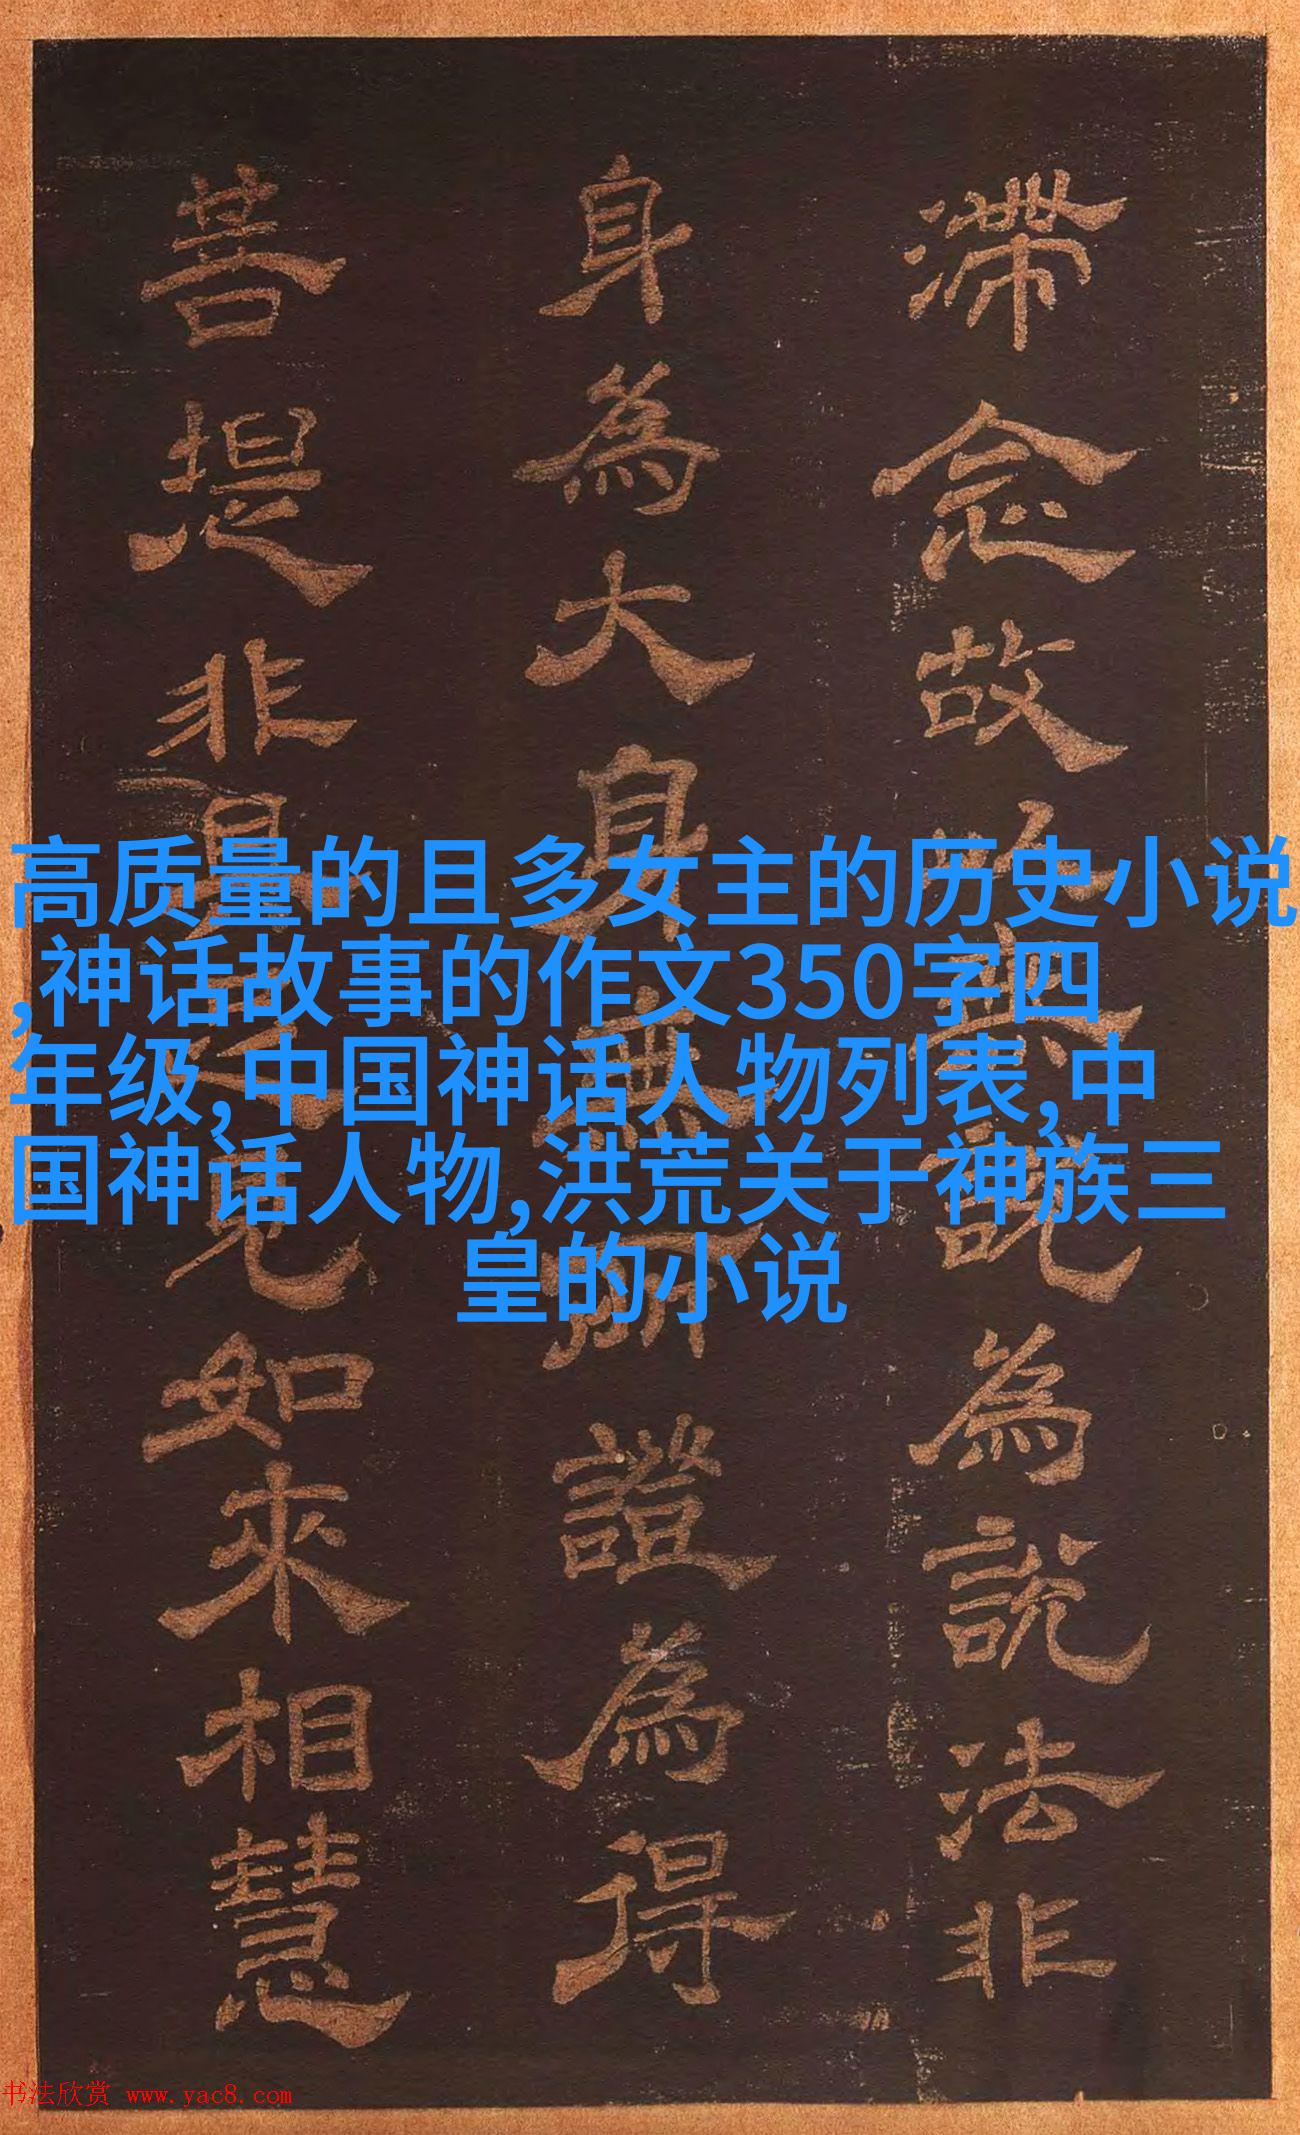 滯念故此無說為說法非
身為大身無所證為得
菩提非具足見如來相慧
高质量的且多女主的历史小说
,神话故事的作文350字四
年级,中国神话人物列表,中
国神话人物,洪荒关于神族三
皇的小说
书法欣赏 www.yac8.com